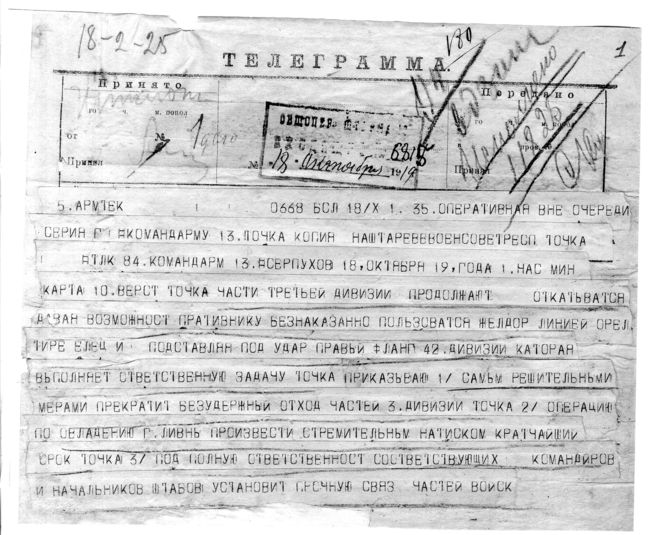 18-2-25
180
1
ТЕЛЕГРАММА
Принято
Передано
го ч. м. попол
от
№
Принял
№ 18 октября 1919
5. АРМТЕК 0368 БСЛ 18/X 1. 35. ОПЕРАТИВНАЯ ВНЕ ОЧЕРЕДИ
СЕРИЯ Г #КОМАНДАРМУ 13. ТОЧКА КОПИЯ НАШТАРЕВВОЕНСОВЕТРЕСП ТОЧКА
#ТЛК 84. КОМАНДАРМ 13. #СЕРПУХОВ 18, ОКТЯБРЯ 19, ГОДА 1. НАС МИН
КАРТА 10. ВЕРСТ ТОЧКА ЧАСТИ ТРЕТЬЕЙ ДИВИЗИИ ПРОДОЛЖАЮТ ОТКАТЬВАТСЯ
ДАВАЯ ВОЗМОЖНОСТ ПРАТИВНИКУ БЕЗНАКАЗАННО ПОЛЬЗОВАТСЯ ЖЕЛДОР ЛИНИЕЙ ОРЕЛ,
ТИРЕ ЕЛЕЦ И ПОДСТАВЛЯЯ ПОД УДАР ПРАВЬЙ ФЛАНГ 42. ДИВИЗИИ КАТОРАЯ
ВЬПОЛНЯЕТ ОТВЕТСТВЕННУЮ ЗАДАЧУ ТОЧКА ПРИКАЗЬВАЮ 1/ САМЬМ РЕШИТЕЛЬНЬМИ
МЕРАМИ ПРЕКРАТИТ БЕЗУДЕРЖНЬЙ ОТХОД ЧАСТЕЙ 3. ДИВИЗИИ ТОЧКА 2/ ОПЕРАЦИЮ
ПО ОВЛАДЕНИЮ Г. ЛИВНЬ ПРОИЗВЕСТИ СТРЕМИТЕЛЬНЬМ НАТИСКОМ КРАТЧАЙШИЙ
СРОК ТОЧКА 3/ ПОД ПОЛНУЮ ОТВЕТСТВЕННОСТ СООТВЕТСТВУЮЩИХ КОМАНДИРОВ
И НАЧАЛЬНИКОВ ШТАБОВ УСТАНОВИТ ПРОЧНУЮ СВЯЗ ЧАСТЕЙ ВОЙСК